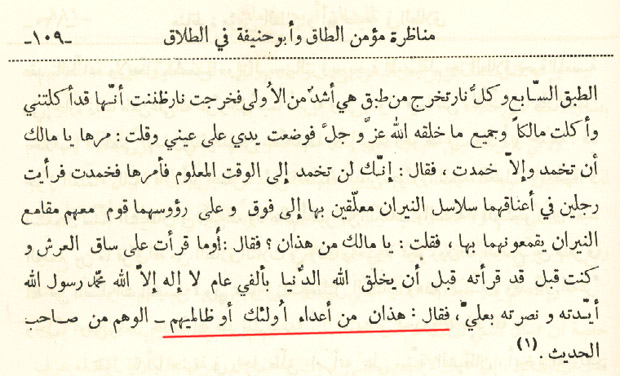 -١٠٩- مناظرة مؤمن الطاق وأبو حنيفة في الطلاق
الطبق السّابع وكلُّ نار تخرج من طبق هي أشدُّ من الأولى فخرجت نار ظننت أنّها قد أكلتني
وأكلت مالكاً وجميع ما خلقه الله عزَّ وجلَّ فوضعت يدي على عيني وقلت : مرها يا مالك
أن تخمد وإلاّ خمدت ، فقال : إنّك لن تخمد إلى الوقت المعلوم فأمرها فخمدت فرأيت
رجلين في أعناقهما سلاسل النيران معلّقين بها إلى فوق و على رؤوسهما قوم معهم مقامع
النيران يقمعونهما بها ، فقلت : يا مالك من هذان ؟ فقال : أوما قرأت على ساق العرش و
كنت قبل قد قرأته قبل أن يخلق الله الدُّنيا بألفي عام لا إله إلاّ الله محمّد رسول الله
أيّدته و نصرته بعليّ ، فقال : هذان من أعداء أولئك أو ظالميهم ـ الوهم من صاحب
الحديث . (١)